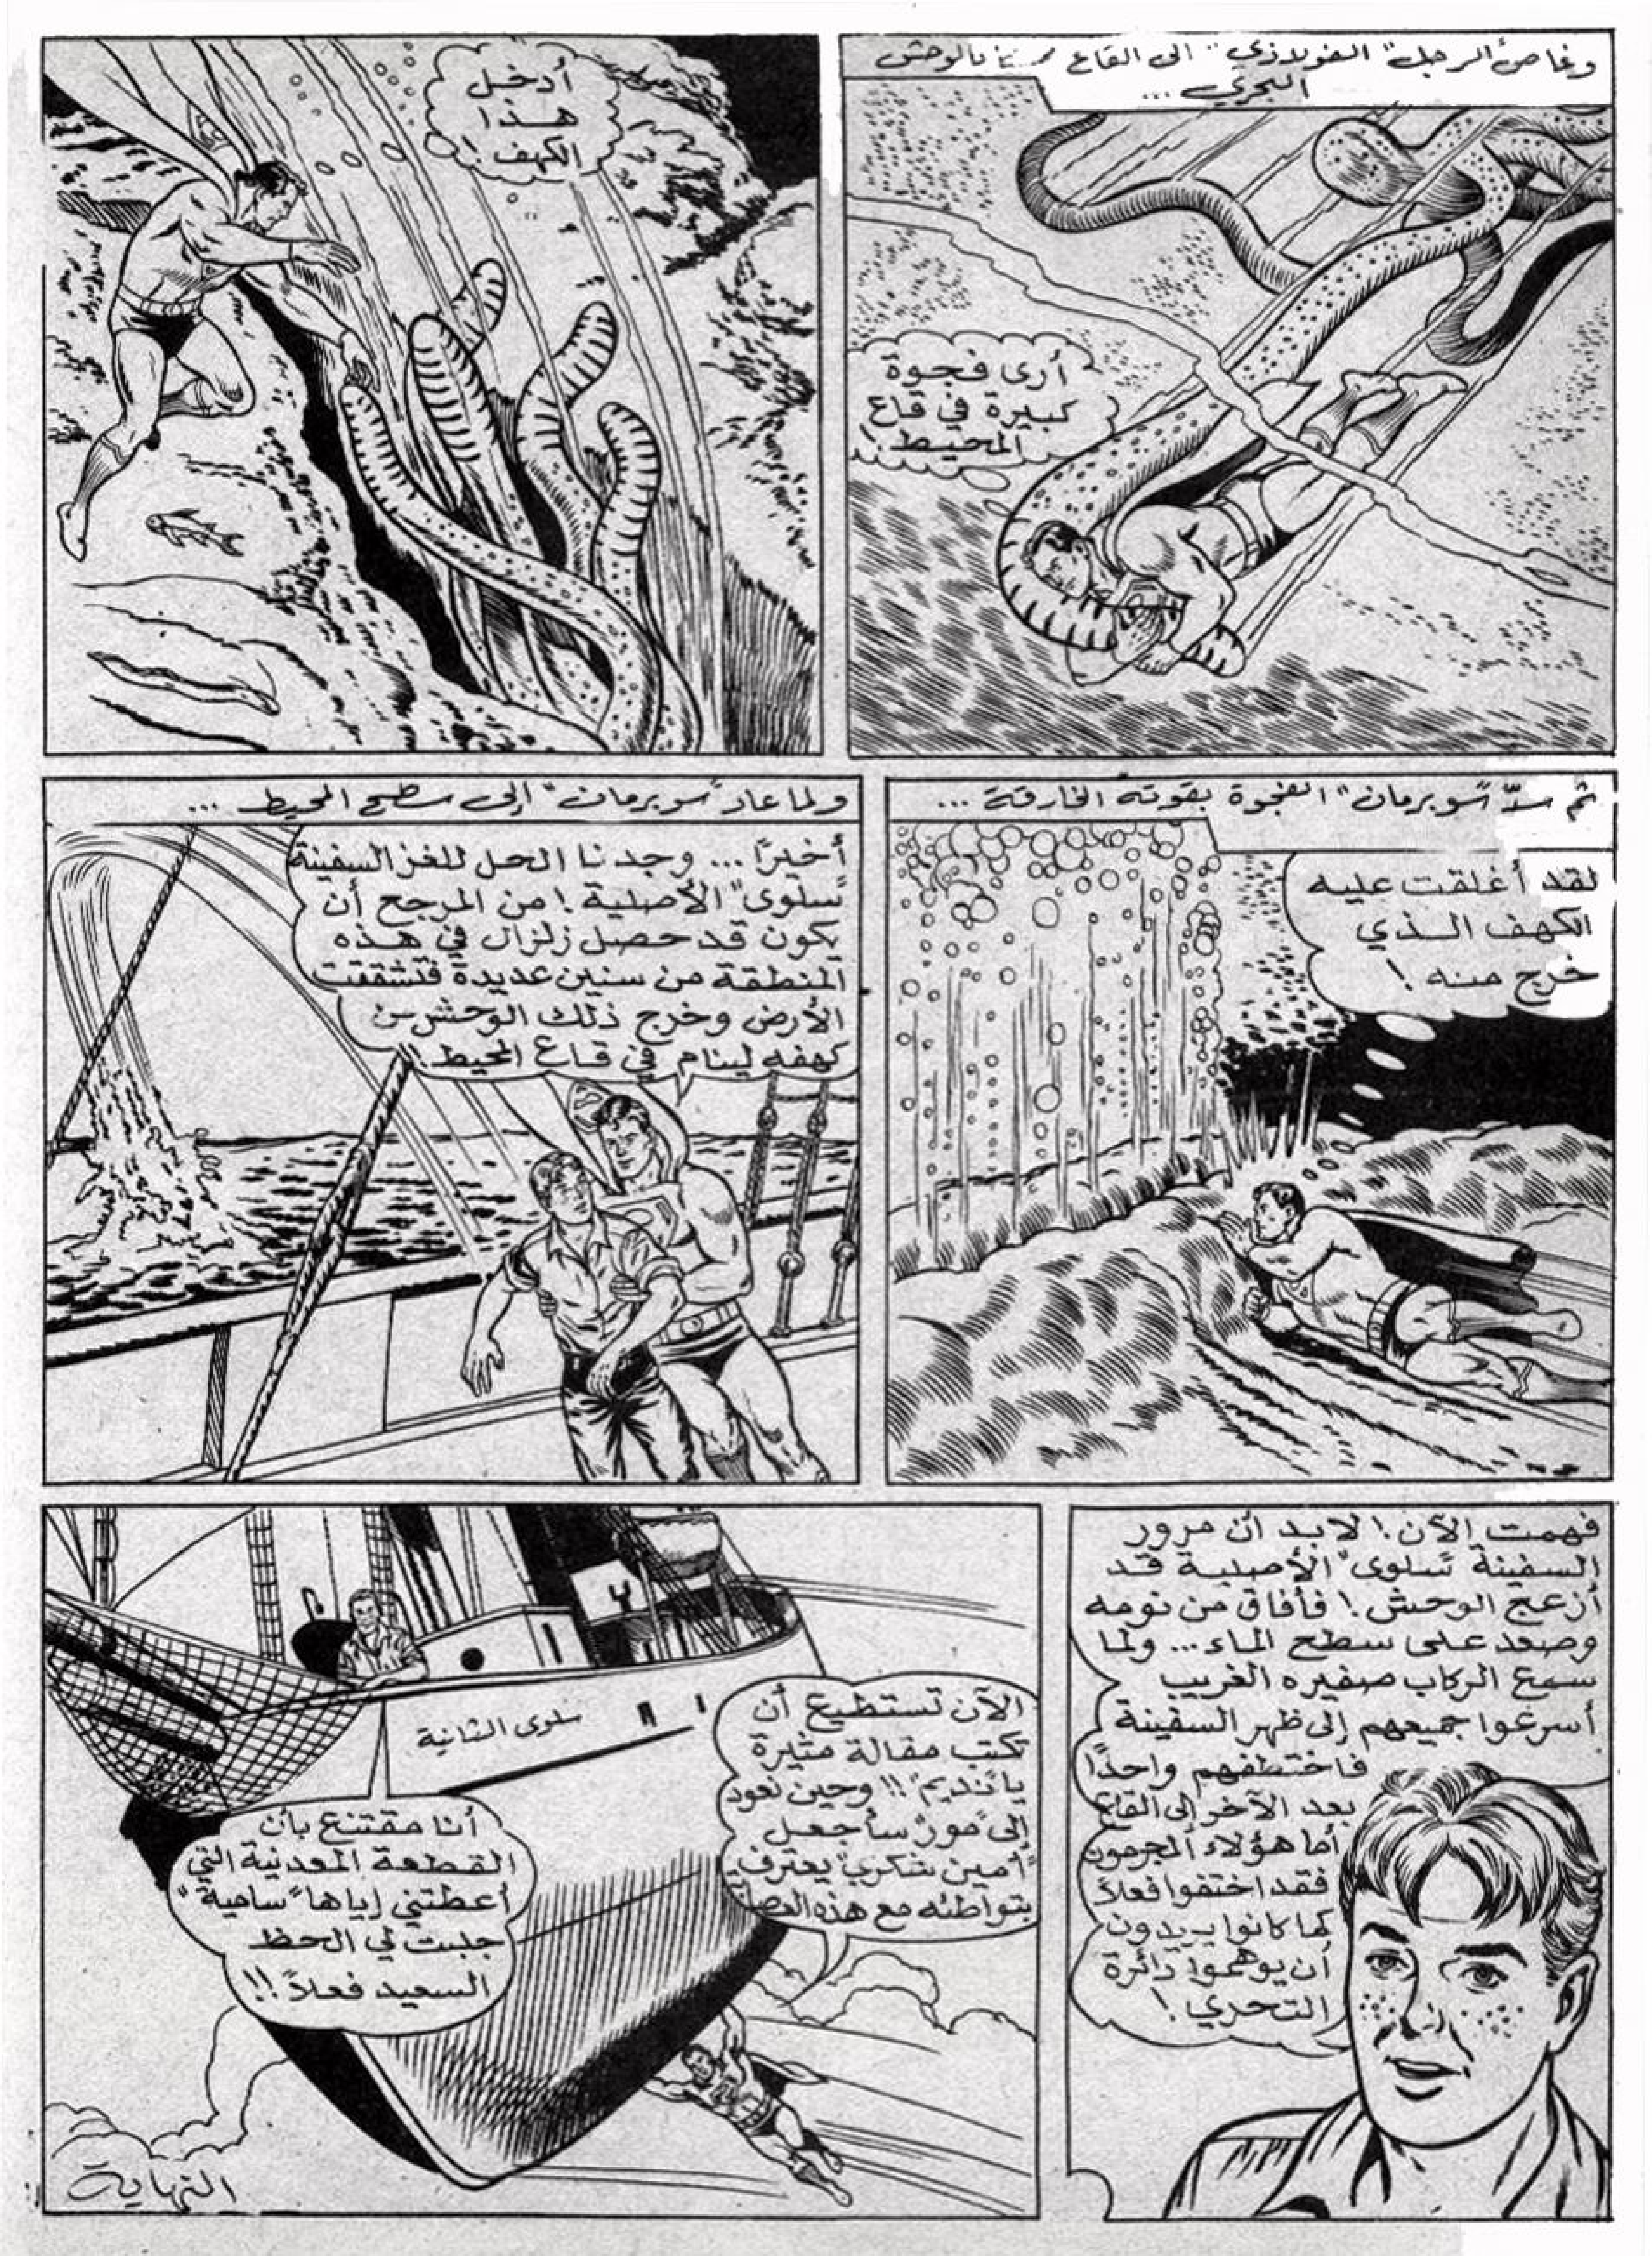 وغاص الرجل "الفولاذي" الى القاع ممسكا بالوحش
البحري ...
أرى فجوة
كبيرة في قاع
المحيط !
أدخل
هذا
الكهف !
ثم سدّ "سوبرمان" الفجوة بقوته الخارقة ...
لقد أغلقت عليه
الكهف الذي
خرج منه !
ولما عاد "سوبرمان" إلى سطح المحيط ...
أخيرًا ... وجدنا الحل للغز السفينة
"سلوى" الأصلية ! من المرجح أن
يكون قد حصل زلزال في هذه
المنطقة من سنين عديدة فتشققت
الأرض وخرج ذلك الوحش من
كهفه لينام في قاع المحيط !!
فهمت الآن ! لا بد ان مرور
السفينة "سلوى" الأصلية قد
أزعج الوحش ! فأفاق من نومه
وصعد على سطح الماء ... ولما
سمع الركاب صفيره الغريب
أسرعوا جميعهم إلى ظهر السفينة
فاختطفهم واحدًا
بعد الآخر إلى القاع
أما هؤلاء المجرمون
فقد اختفوا فعلاً
كما كانوا يريدون
أن يوهموا دائرة
التحري !
سلوى الثانية
الآن تستطيع أن
تكتب مقالة مثيرة
يا "نديم" !! وحين نعود
إلى "مور" سأجعل
"أمين شكري" يعترف
بتواطئه مع هذه
أنا مقتنع بأن
القطعة المعدنية التي
أعطتني إياها "سامية"
جلبت لي الحظ
السعيد فعلاً !!
النهاية